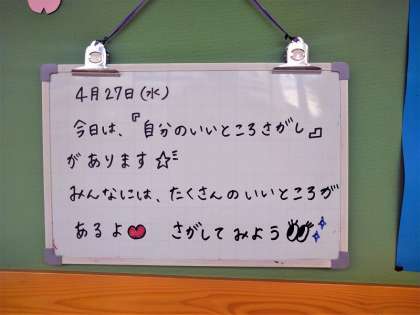 4月27日(水)
今日は、『自分のいいところさがし』
があります☆
みんなには、たくさんのいいところが
あるよ❤ さがしてみよう👀